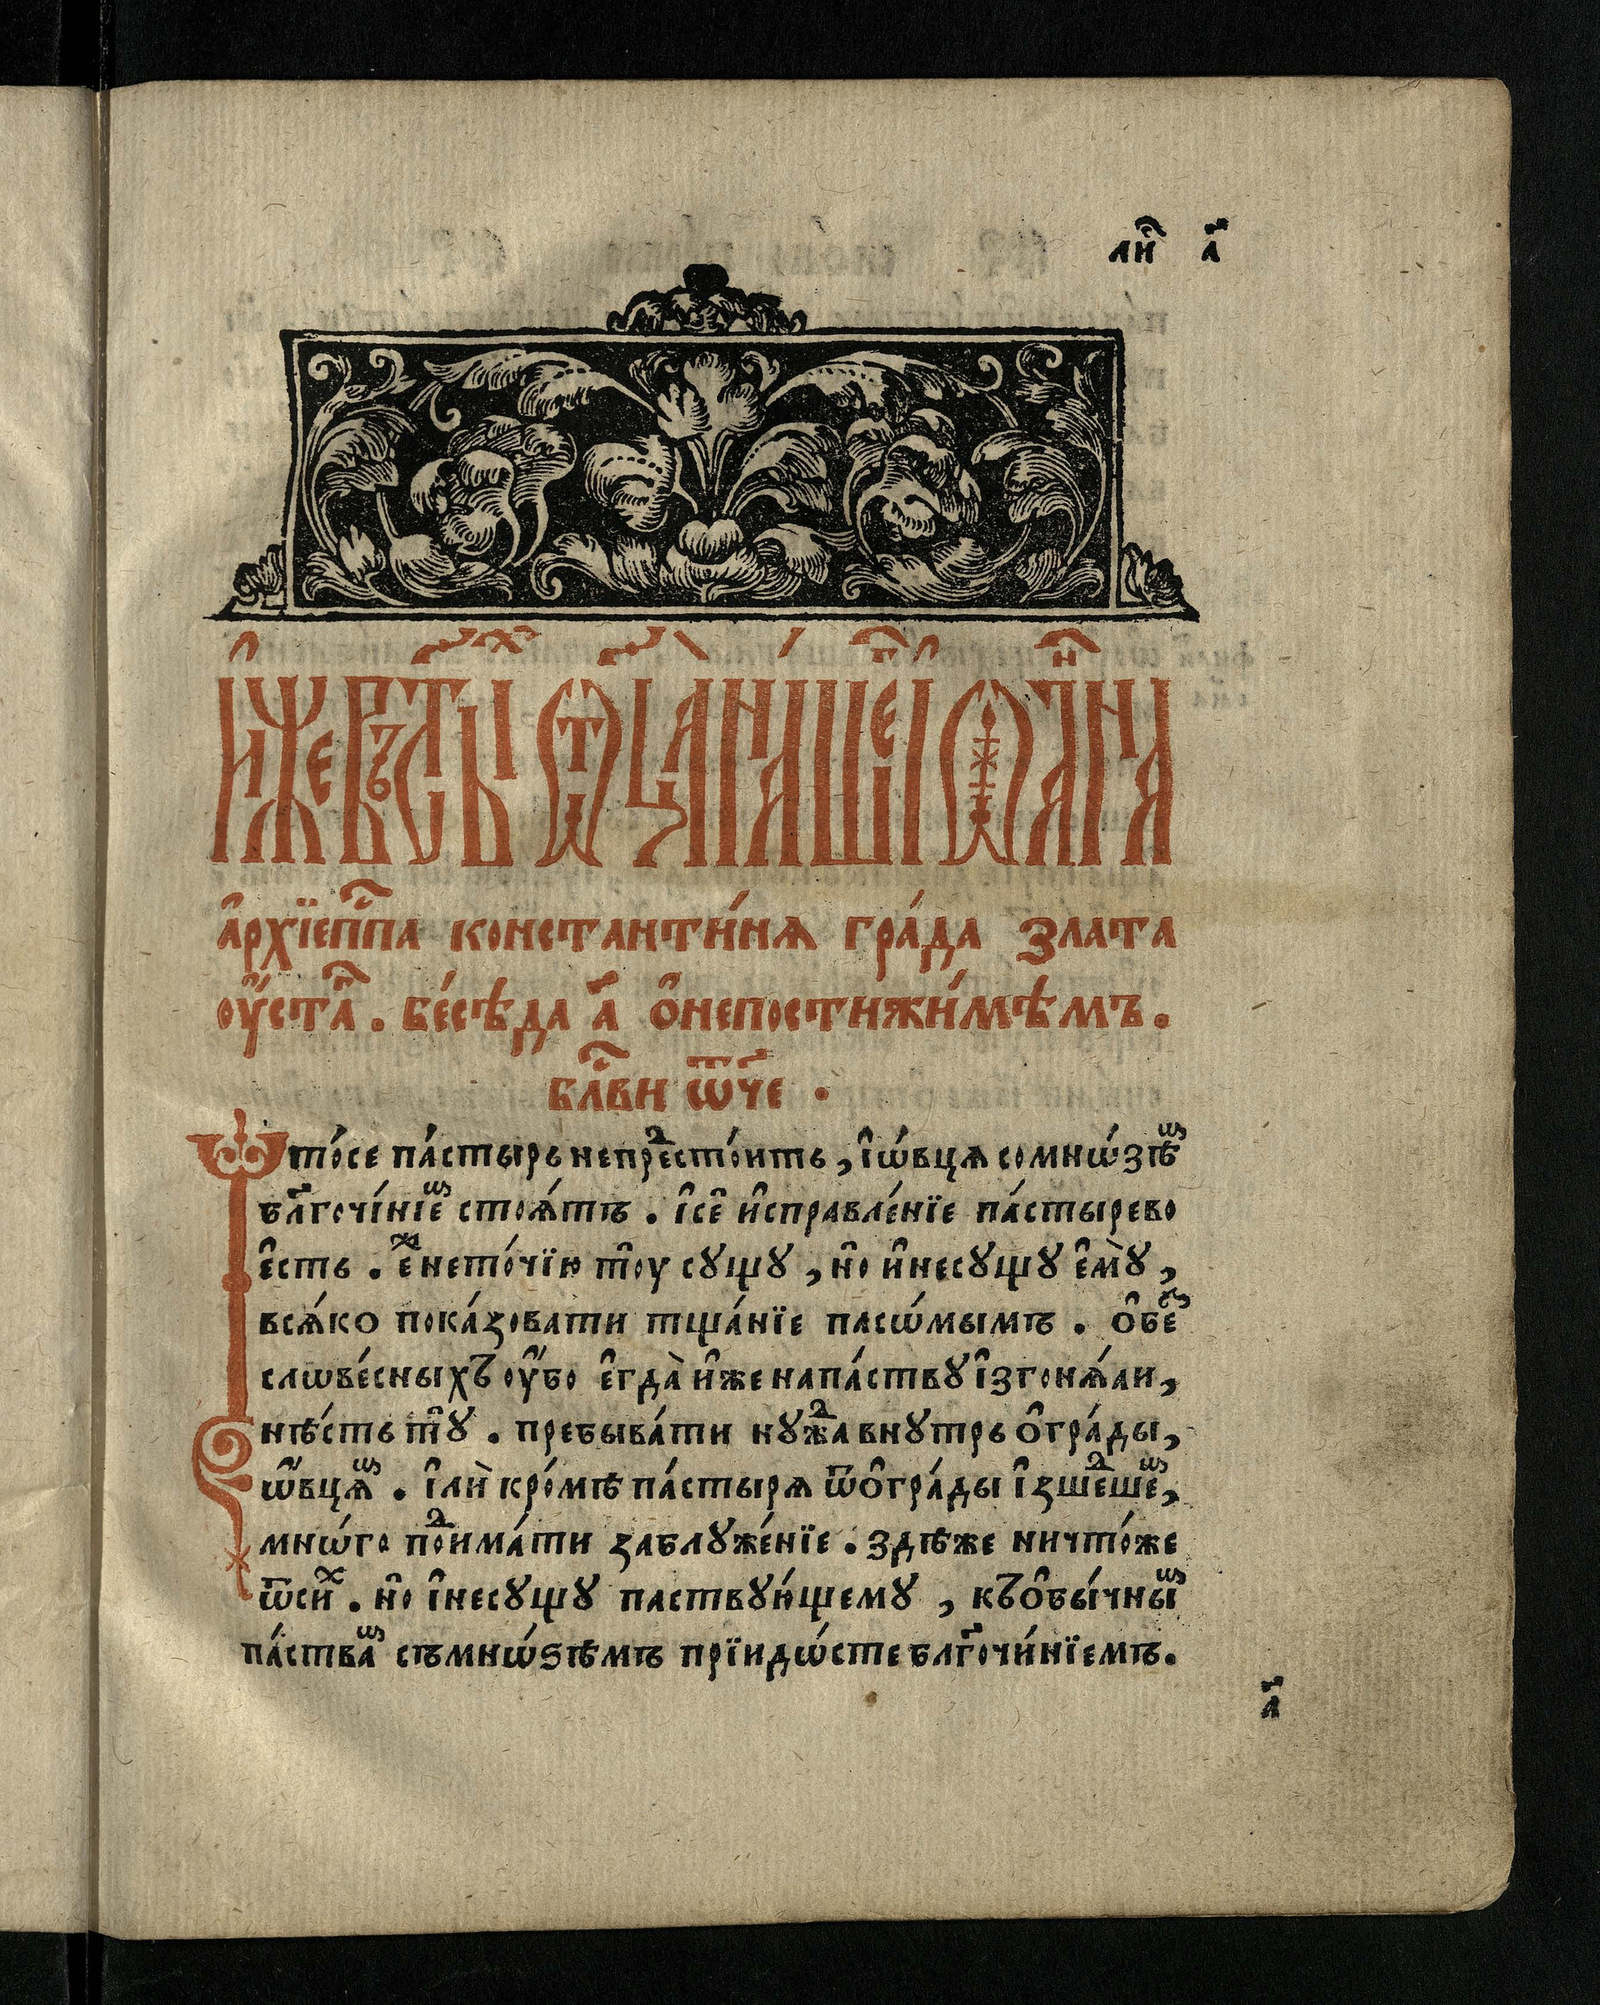 ли́с҃ а҃
И҆́ЖЕ ВЪ СТ҃ЫХ Ѿ҃ЦА НА́ШЕГО І҆ѠА́ННА
а҆рхїепⷭ҇па константи́нѧ гра́да злата
оу҆́стаⷢ. бесѣ́да а҃ ѡ҆непостижи́мѣмъ.
блⷭ҇ви ѿч҃е .
Что́се па́стырь непреⷣсто́итъ, і҆ѡ́вцѧ сомнѡ́зѣⷨ
бл҃гочи́нїеⷨ стоѧ́тъ . і҆се̑ и҆справле́нїе па́стырево
е҆сть . е҆ⷤ нето́чїю тꙋ̑ сꙋщꙋ , но̑ и҆несꙋщꙋ е҆мꙋ̀ ,
всѧ́ко пока́зовати тща́нїе пасѡ́мымъ . ѻ҆беⷥ
слѡве́сныхъ оу҆́бо е҆гда̀ и҆́же напа́ствꙋ і҆згонѧ́ли ,
нѣ́сть тꙋ̑ . пребыва́ти нꙋжⷣа внꙋтрь ѻ҆гра́ды ,
ѡ҆́вцѧⷨ . і҆лѝ кро́мѣ па́стырѧ ѿѻ҆гра́ды і҆зшеⷣшеⷨ ,
мнѡ́го поⷣима́ти заблꙋже́нїе . здѣ́же ничто́же
ѿсиⷯ . но̑ і҆несꙋщꙋ паствꙋ́ющемꙋ , къѻ҆бы́чныⷨ
па́стваⷨ съмнѡ́ѕѣмъ прїидѡ́сте бл҃гочи́нїемъ .
а҃